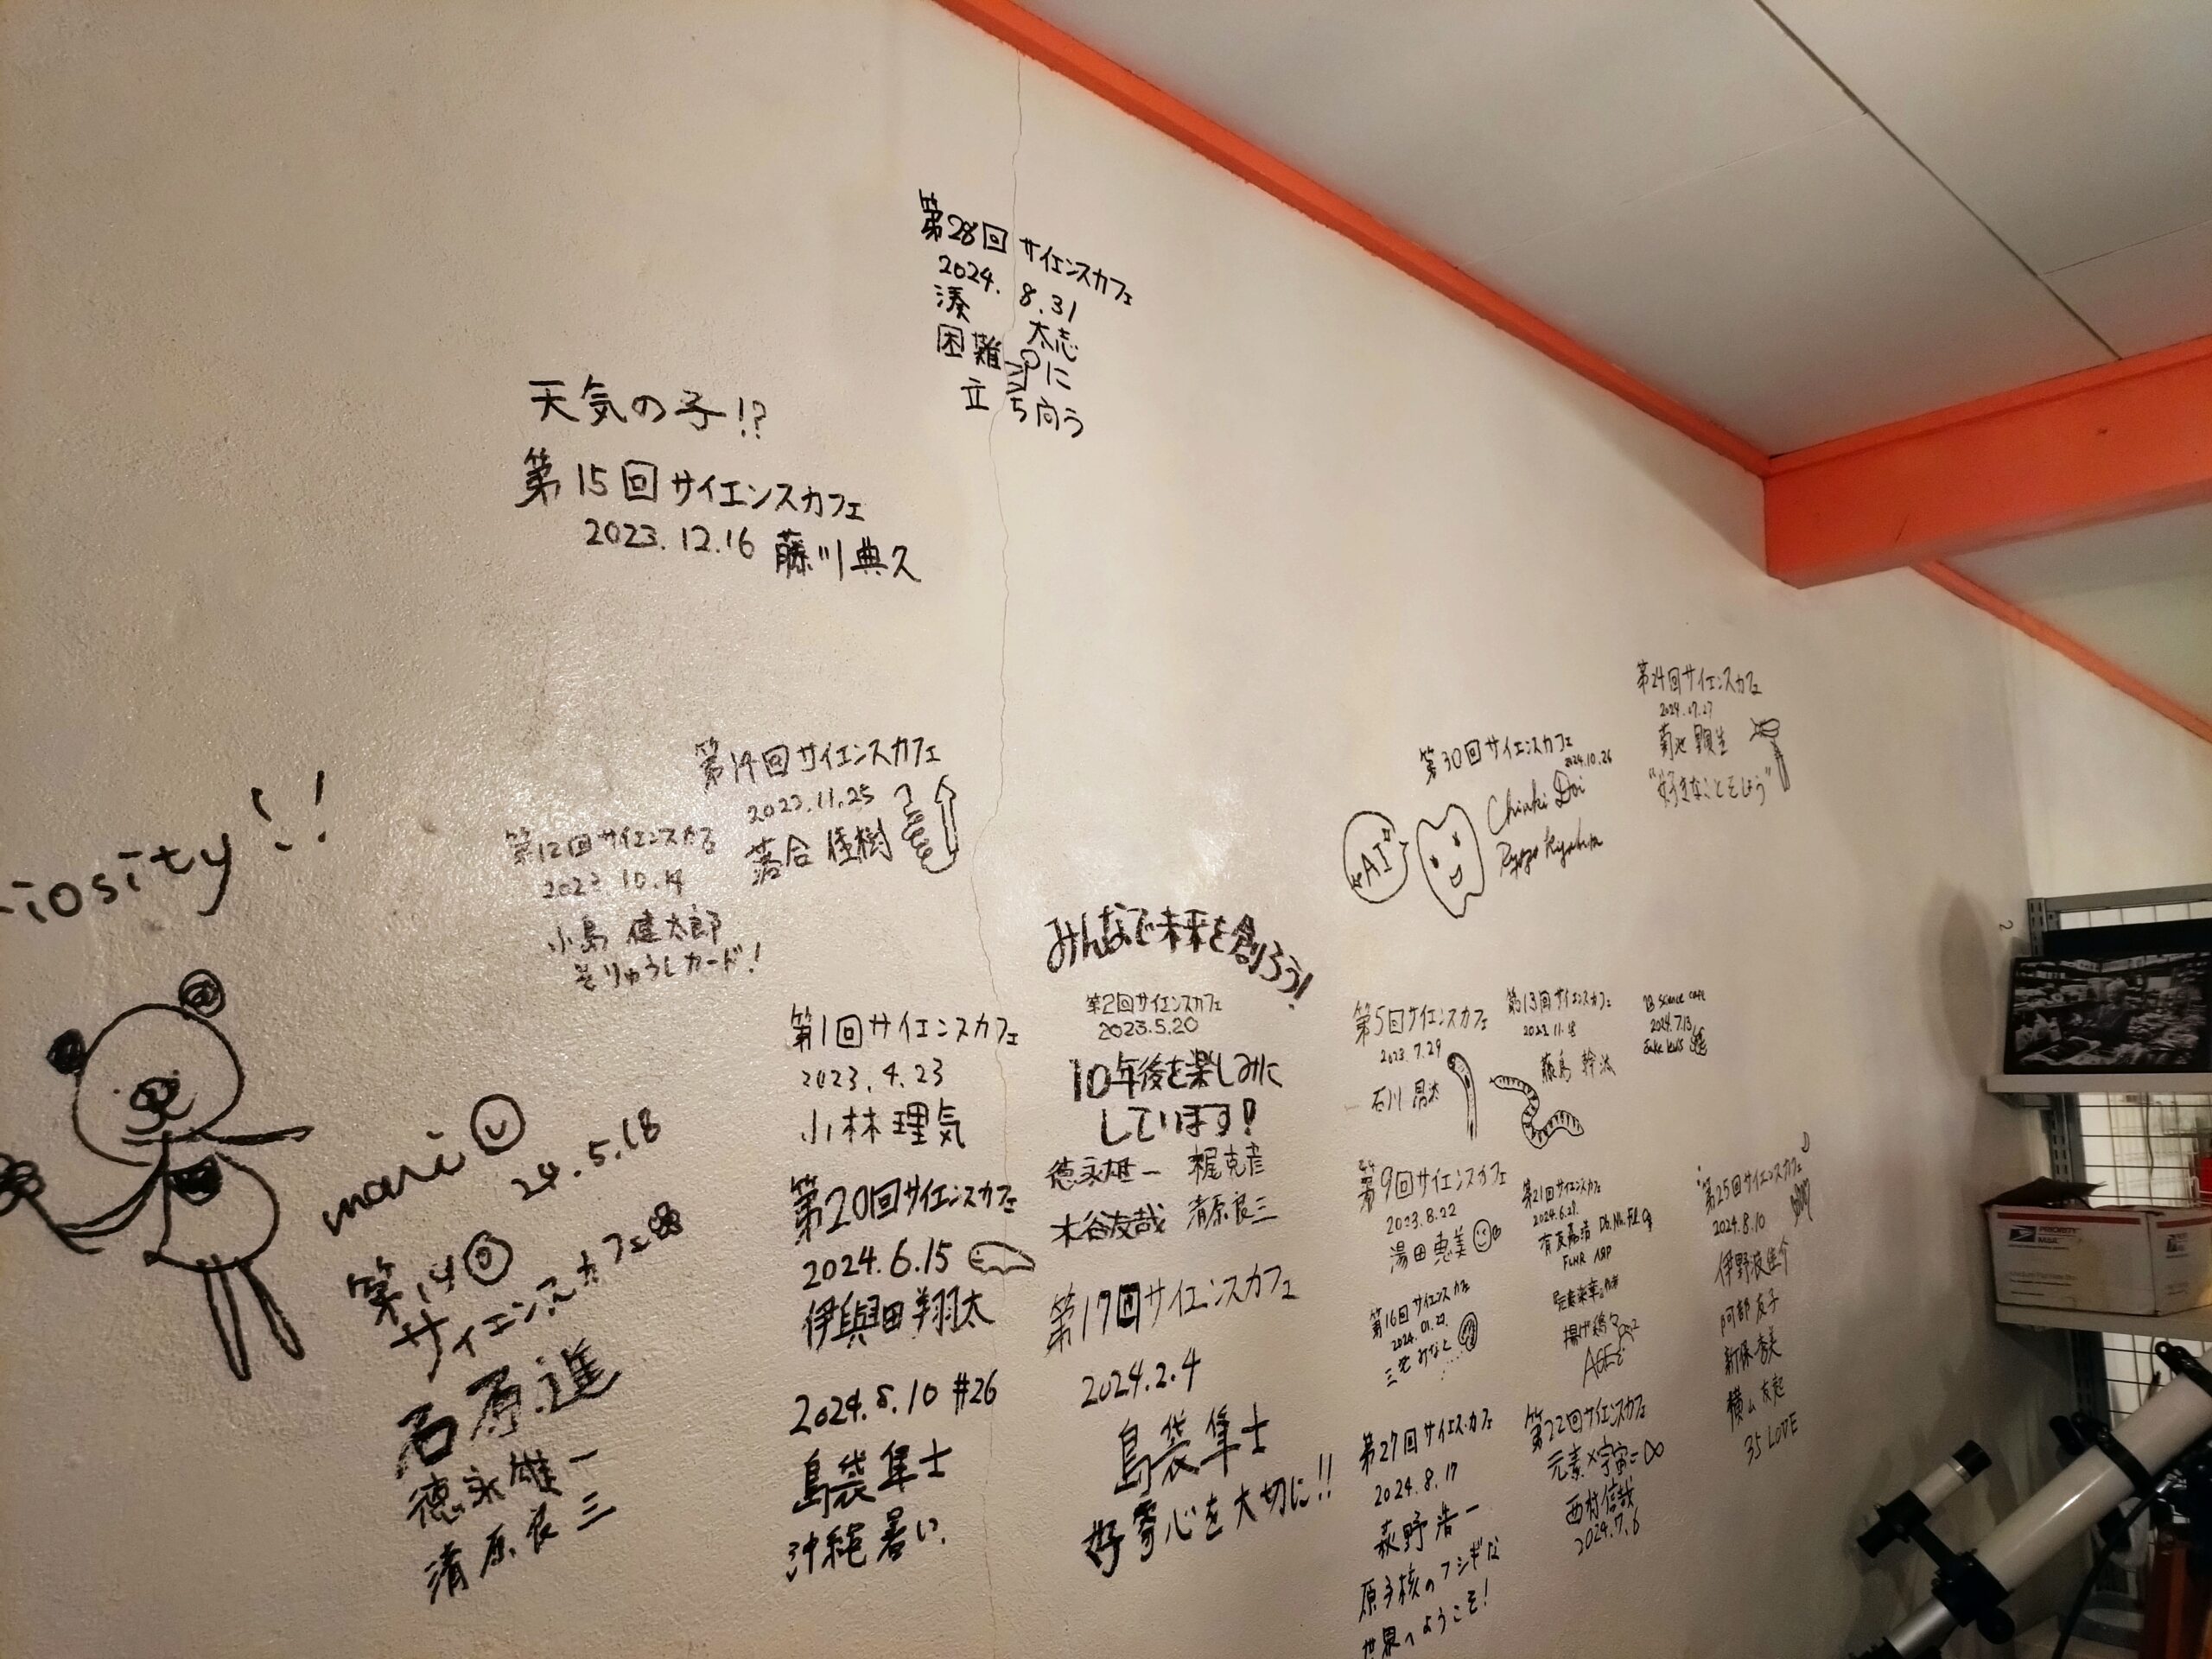 第28回 サイエンスカフェ
2024. 8.31
湊 太志
困難に
立ち向う
天気の子!?
第15回サイエンスカフェ
2023.12.16 藤川典久
第24回サイエンスカフェ
2024.07.27
菊池 顕生
"好きなことをしよう"
第30回サイエンスカフェ
2024.10.26
"AI"
Chiaki Doi
第14回サイエンスカフェ
2023.11.25
落合 佳樹
第12回サイエンスカフェ
2023.10.14
小島 健太郎
そりゅうしカード!
iosity!!
mari
24.5.18
第19回
サイエンスカフェ
石原 進
徳永雄一
清原良三
第1回サイエンスカフェ
2023.4.23
小林理気
第20回サイエンスカフェ
2024.6.15
伊與田翔太
2024.8.10 #26
島袋隼士
沖縄暑い.
みんなで未来を創ろう!
第2回サイエンスカフェ
2023.5.20
10年後を楽しみに
しています!
徳永雄一 梶克彦
木谷友哉 清原良三
第17回サイエンスカフェ
2024.2.4
島袋隼士
好奇心を大切に!!
第5回サイエンスカフェ
2023.7.29
石川 昂汰
第9回サイエンスカフェ
2023.8.22
湯田恵美
第16回サイエンスカフェ
三宅 みなと
第27回サイエンスカフェ
2024.8.17
荻野浩一
原子核のフシギな
世界へようこそ!
第13回サイエンスカフェ
藤島 幹汰
第21回サイエンスカフェ
2024.6.29
揚げ鶏々
AGE
第22回サイエンスカフェ
元素×宇宙=∞
西村信哉
2024.7.6
Science cafe
2024.7.13
第25回サイエンスカフェ
2024.8.10
伊野波佳介
阿部友子
新保秀美
横山友起
35 LOVE
PRIORITY
MAIL